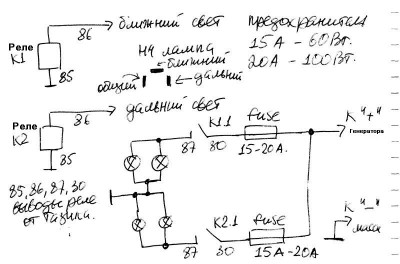 86
ближний свет
предохранители
Реле
К1
85
H4 лампа
ближний
общий
дальний
15А – 60Вт.
20А – 100Вт.
дальний свет
86
Реле
К2
85
К1.1
fuse
К "+"
Генератора
87
30
15-20А.
85,86,87,30
выводы реле
от Тазика.
К2.1
fuse
К "–"
масса
87
30
15А – 20А